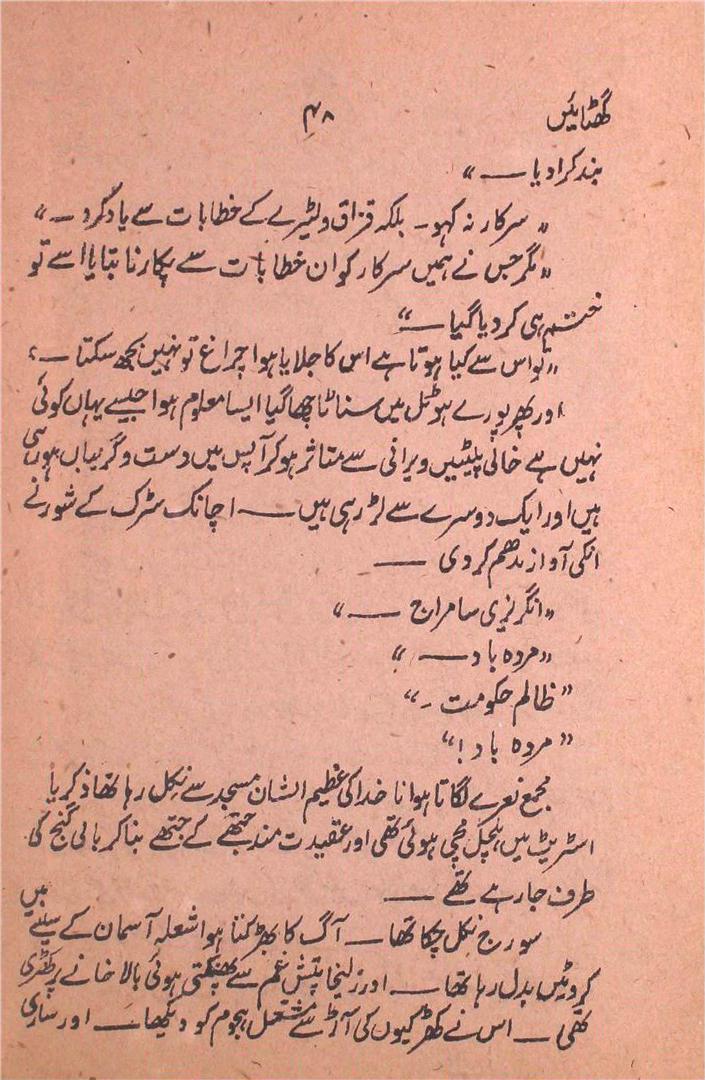 گھٹائیں
۴۸
بند کرا دیا ــــ»
«سرکار نہ کہو۔ بلکہ قزاق ولٹیرے کے خطابات سے یاد کرو ــ»
«مگر جس نے ہمیں سرکار کو ان خطابات سے پکارنا بتایا اسے تو
ختم ہی کر دیا گیا ــــ“
«تو اس سے کیا ہوتا ہے اس کا جلایا ہوا چراغ تو نہیں بجھ سکتا ــ»
اور پھر پورے ہوٹل میں سناٹا چھا گیا ایسا معلوم ہوا جیسے یہاں کوئی
نہیں ہے خالی پلیٹیں ویرانی سے متاثر ہو کر آپس میں دست و گریباں ہو رہی
ہیں اور ایک دوسرے سے لڑ رہی ہیں ــــ اچانک سڑک کے شور نے
انکی آواز مدھم کر دی ــــ
«انگریزی سامراج ــــ»
«مردہ باد ــــ»
”ظالم حکومت ۔“
”مردہ باد!“
مجمع نعرے لگاتا ہوا نا خدا کی عظیم الشان مسجد سے نکل رہا تھا ذکریا
اسٹریٹ میں ہلچل مچی ہوئی تھی اور عقیدت مند جتھے کے جتھے بنا کر بالی گنج کی
طرف جا رہے تھے ــــ
سورج نکل چکا تھا ــ آگ کا بھڑکتا ہوا شعلہ آسمان کے سینے میں
کروٹیں بدل رہا تھا ــ اور زلیخا تپش غم سے پھنکتی ہوئی بالا خانے پر کھڑی
تھی ــ اس نے کھڑکیوں کی آڑ سے مشتعل ہجوم کو دیکھا ــ اور ساری